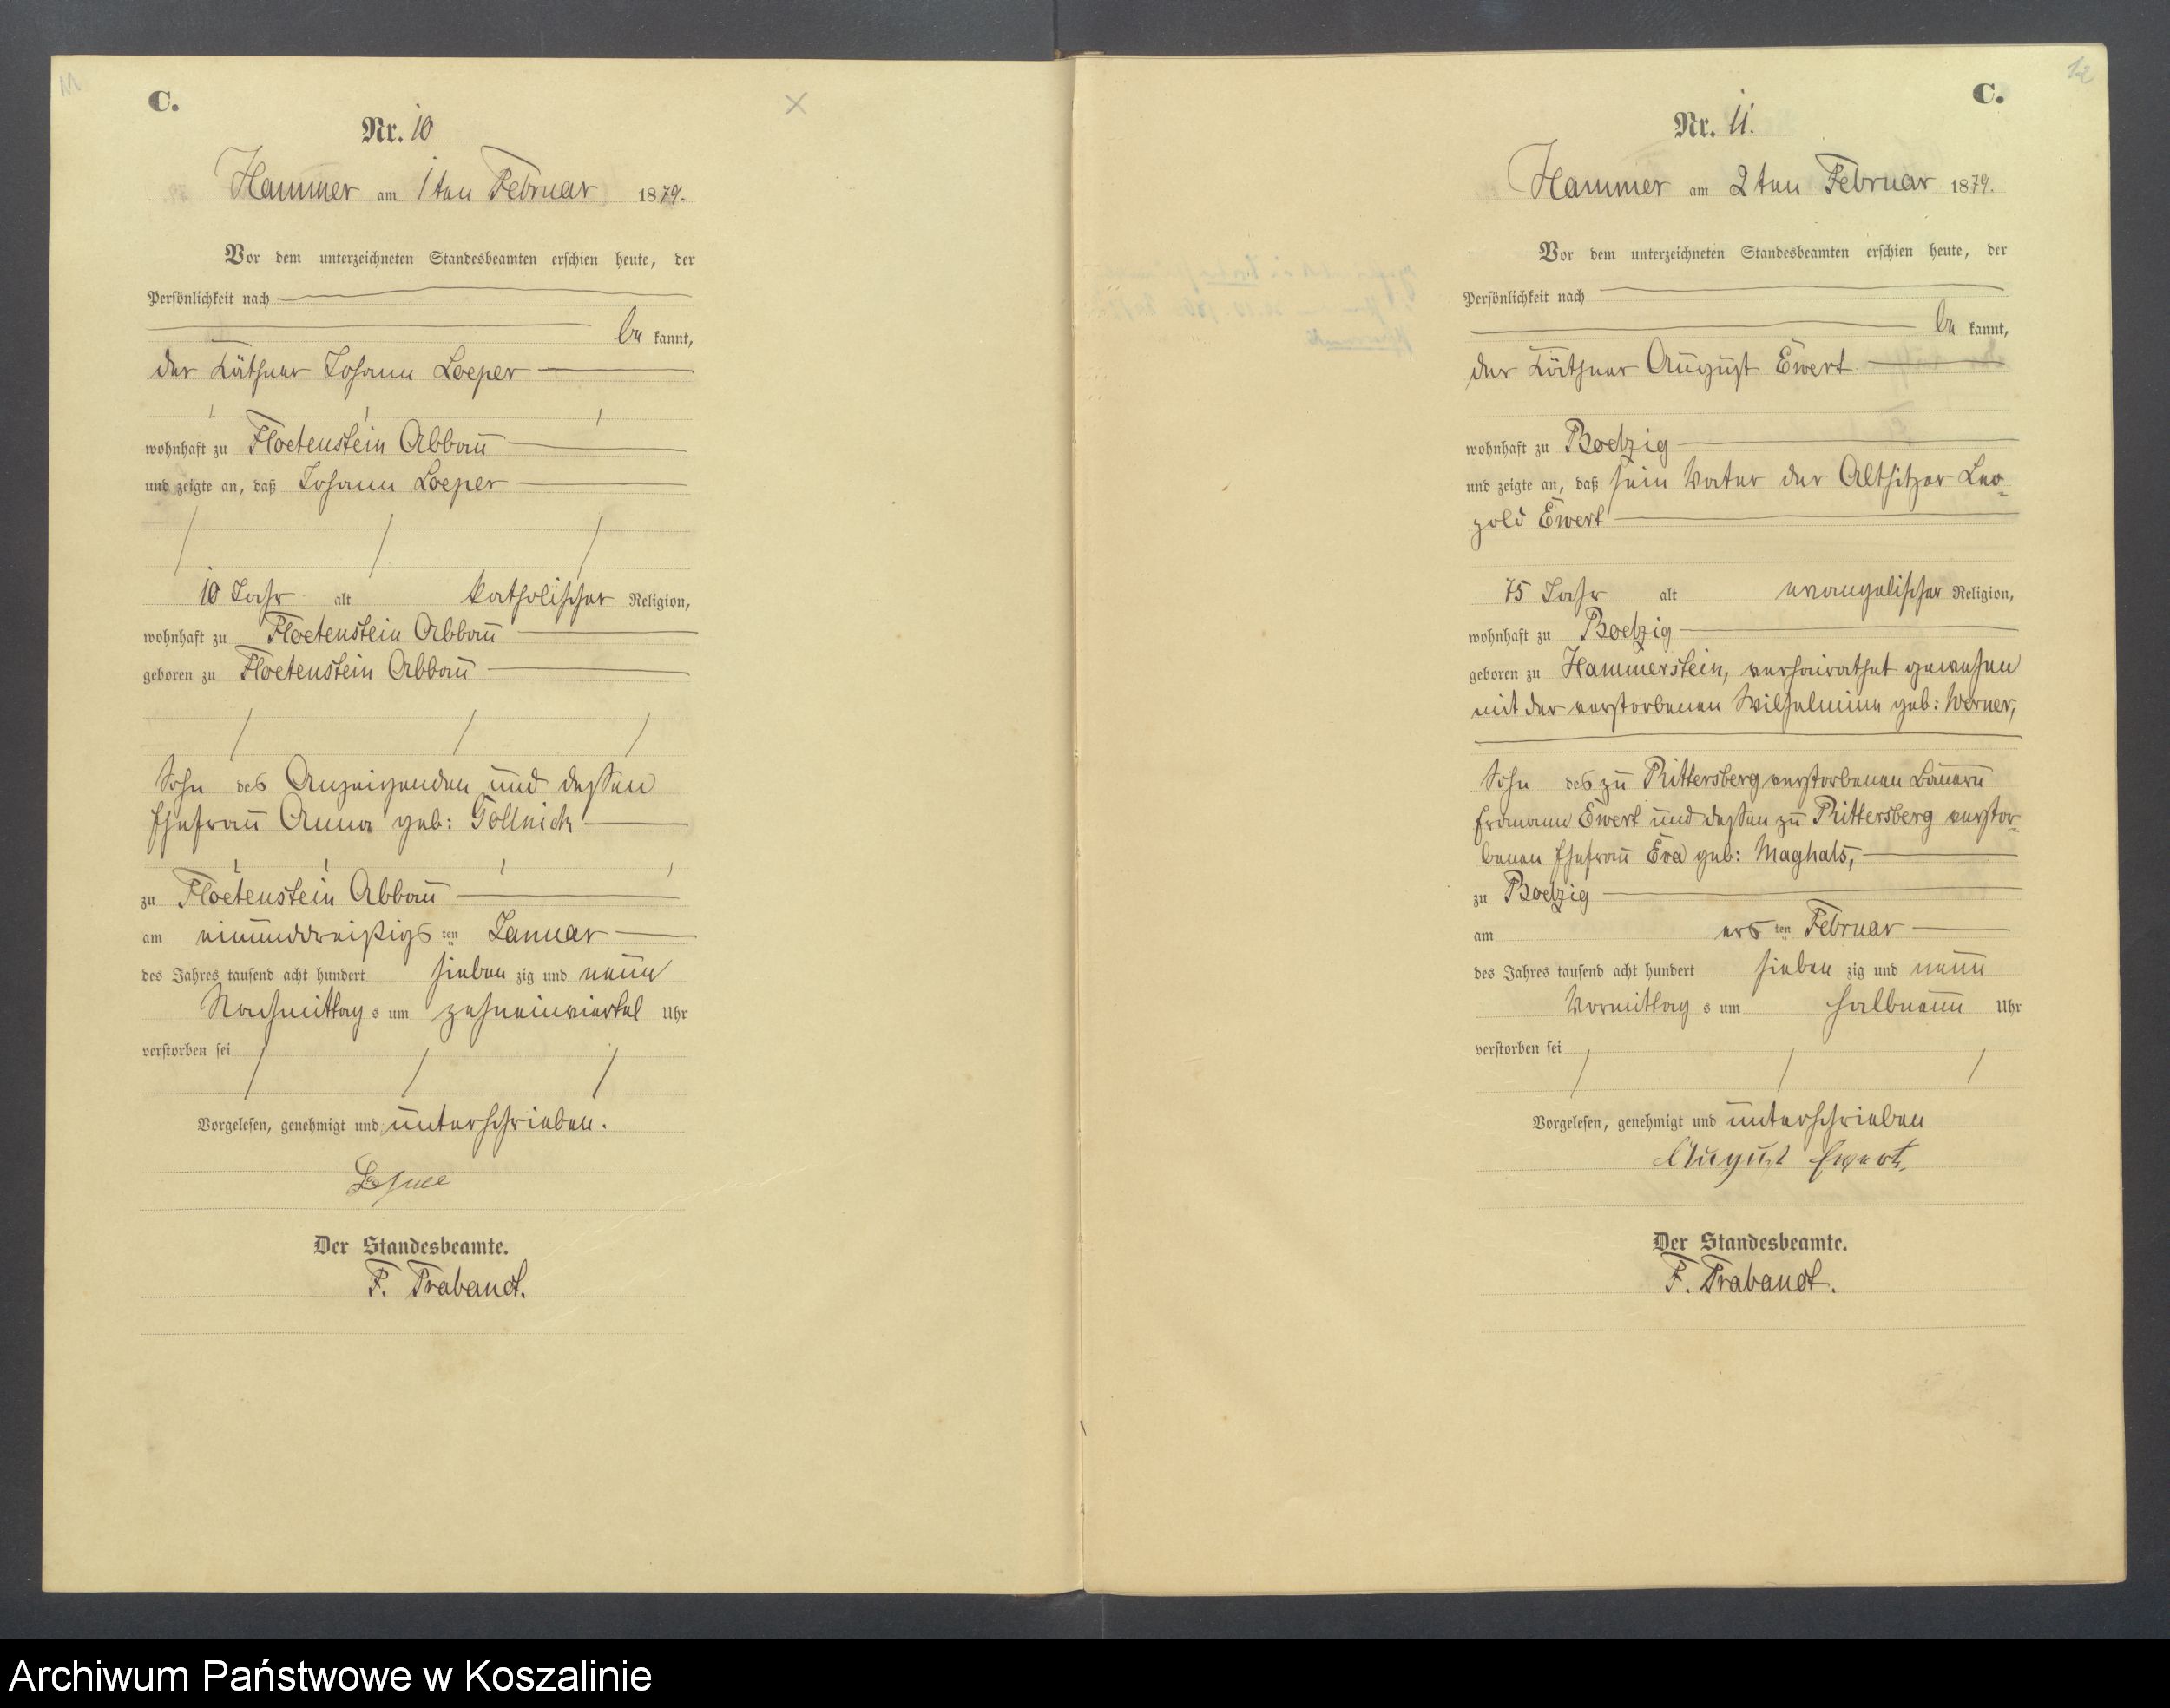 11
C.
Nr. 10
Hammer am 1ten Februar 1879.
Vor dem unterzeichneten Standesbeamten erschien heute, der
Persönlichkeit nach
be kannt,
der Käthner Johann Loeper
wohnhaft zu Floetenstein Abbau
und zeigte an, daß Johann Loeper
10 Jahr alt katholischer Religion,
wohnhaft zu Floetenstein Abbau
geboren zu Floetenstein Abbau
Sohn des Anzeigenden und dessen
Ehefrau Anna geb: Gollnick
zu Floetenstein Abbau
am einunddreißigs ten Januar
des Jahres tausend acht hundert sieben zig und neun
Nachmittag s um zehneinviertel Uhr
verstorben sei
Vorgelesen, genehmigt und unterschrieben.
Der Standesbeamte.
F. Trabandt.
12
C.
Nr. 11.
Hammer am 2ten Februar 1879.
Vor dem unterzeichneten Standesbeamten erschien heute, der
Persönlichkeit nach
be kannt,
der Käthner August Ewert
wohnhaft zu Boetzig
und zeigte an, daß sein Vater der Altsitzer Leo-
pold Ewert
75 Jahr alt evangelischer Religion,
wohnhaft zu Boetzig
geboren zu Hammerstein, verheirathet gewesen
mit der verstorbenen Wilhelmine geb: Werner,
Sohn des zu Rittersberg verstorbenen Bauern
Erdmann Ewert und dessen zu Rittersberg verstor-
benen Ehefrau Eva geb: Maghals,
zu Boetzig
am ers ten Februar
des Jahres tausend acht hundert sieben zig und neun
Vormittag s um halbneun Uhr
verstorben sei
Vorgelesen, genehmigt und unterschrieben
August Ewert.
Der Standesbeamte.
F. Trabandt.
Archiwum Państwowe w Koszalinie